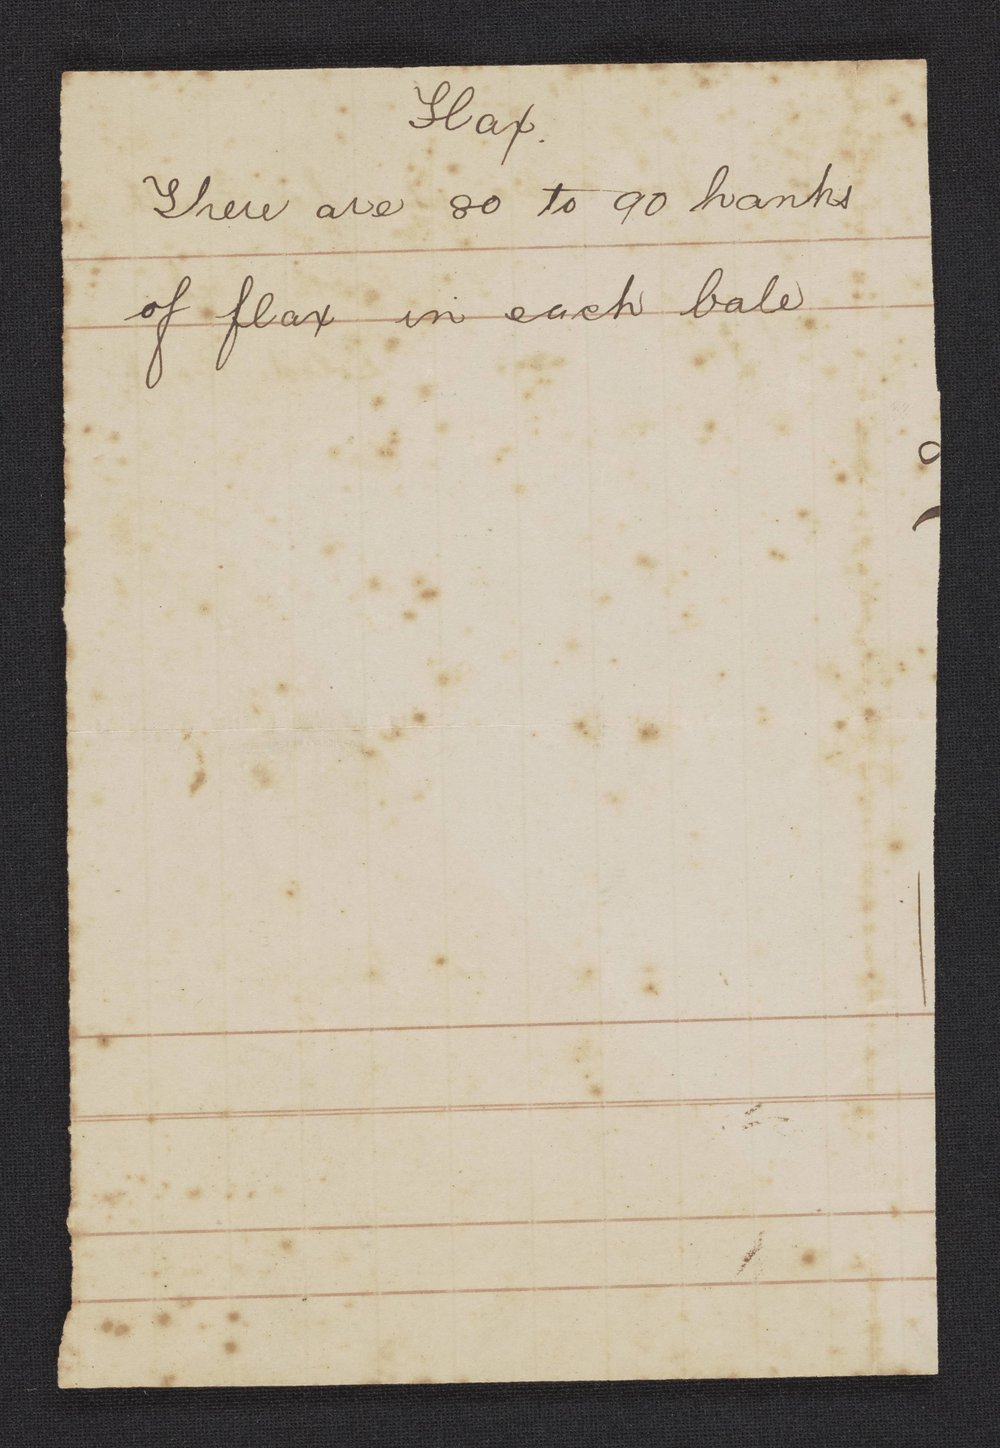 Flax.
There are 80 to 90 hanks
of flax in each bale